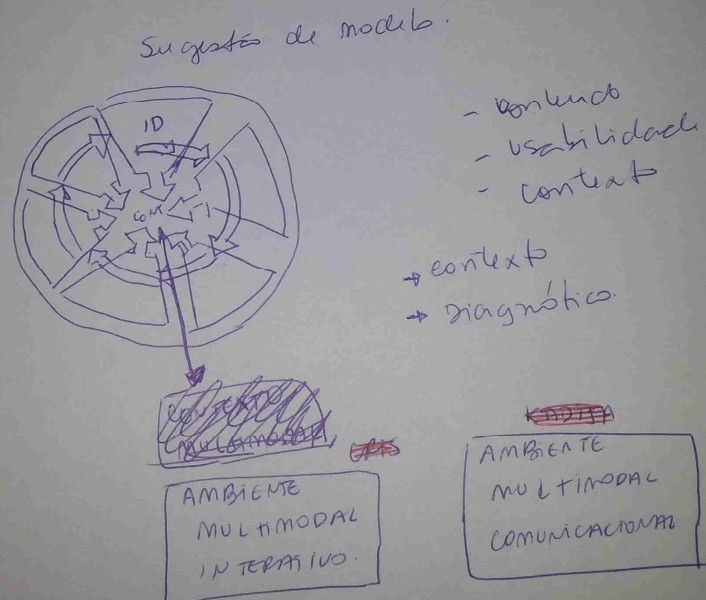 Sugestão de modelo.
ID
COM
- conteudo
- usabilidade
- contexto
→ contexto
→ Diagnótico.
MULTIMODAL
AMBIENTE
MULTIMODAL
INTERATIVO.
AMBIENTE
MULTIMODAL
COMUNICACIONAL